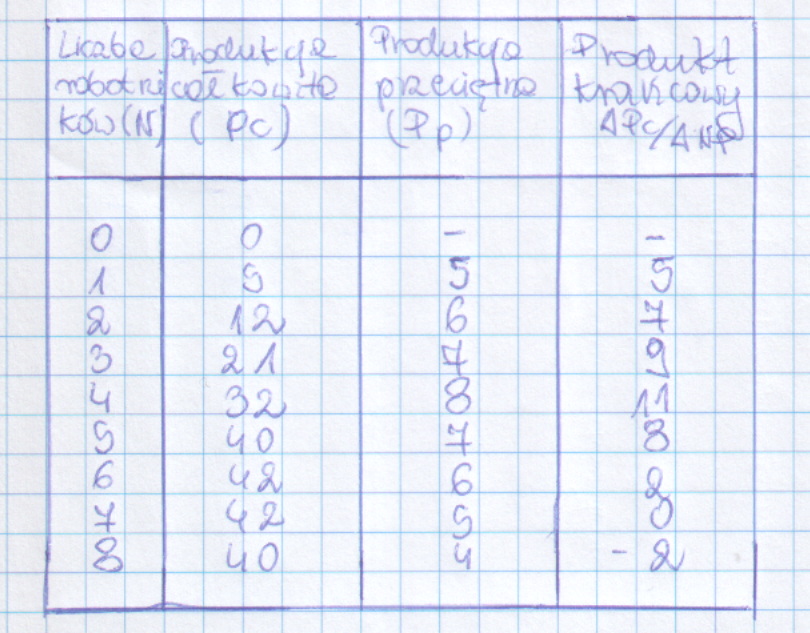 Liczba Produkcja Produkcja Produkt
robotni całkowita przeciętna krańcowy
ków (N) (Pc) (Pp) ΔPc/ΔN
0 0 - -
1 5 5 5
2 12 6 7
3 21 7 9
4 32 8 11
5 40 7 8
6 42 6 2
7 42 5 0
8 40 4 -2